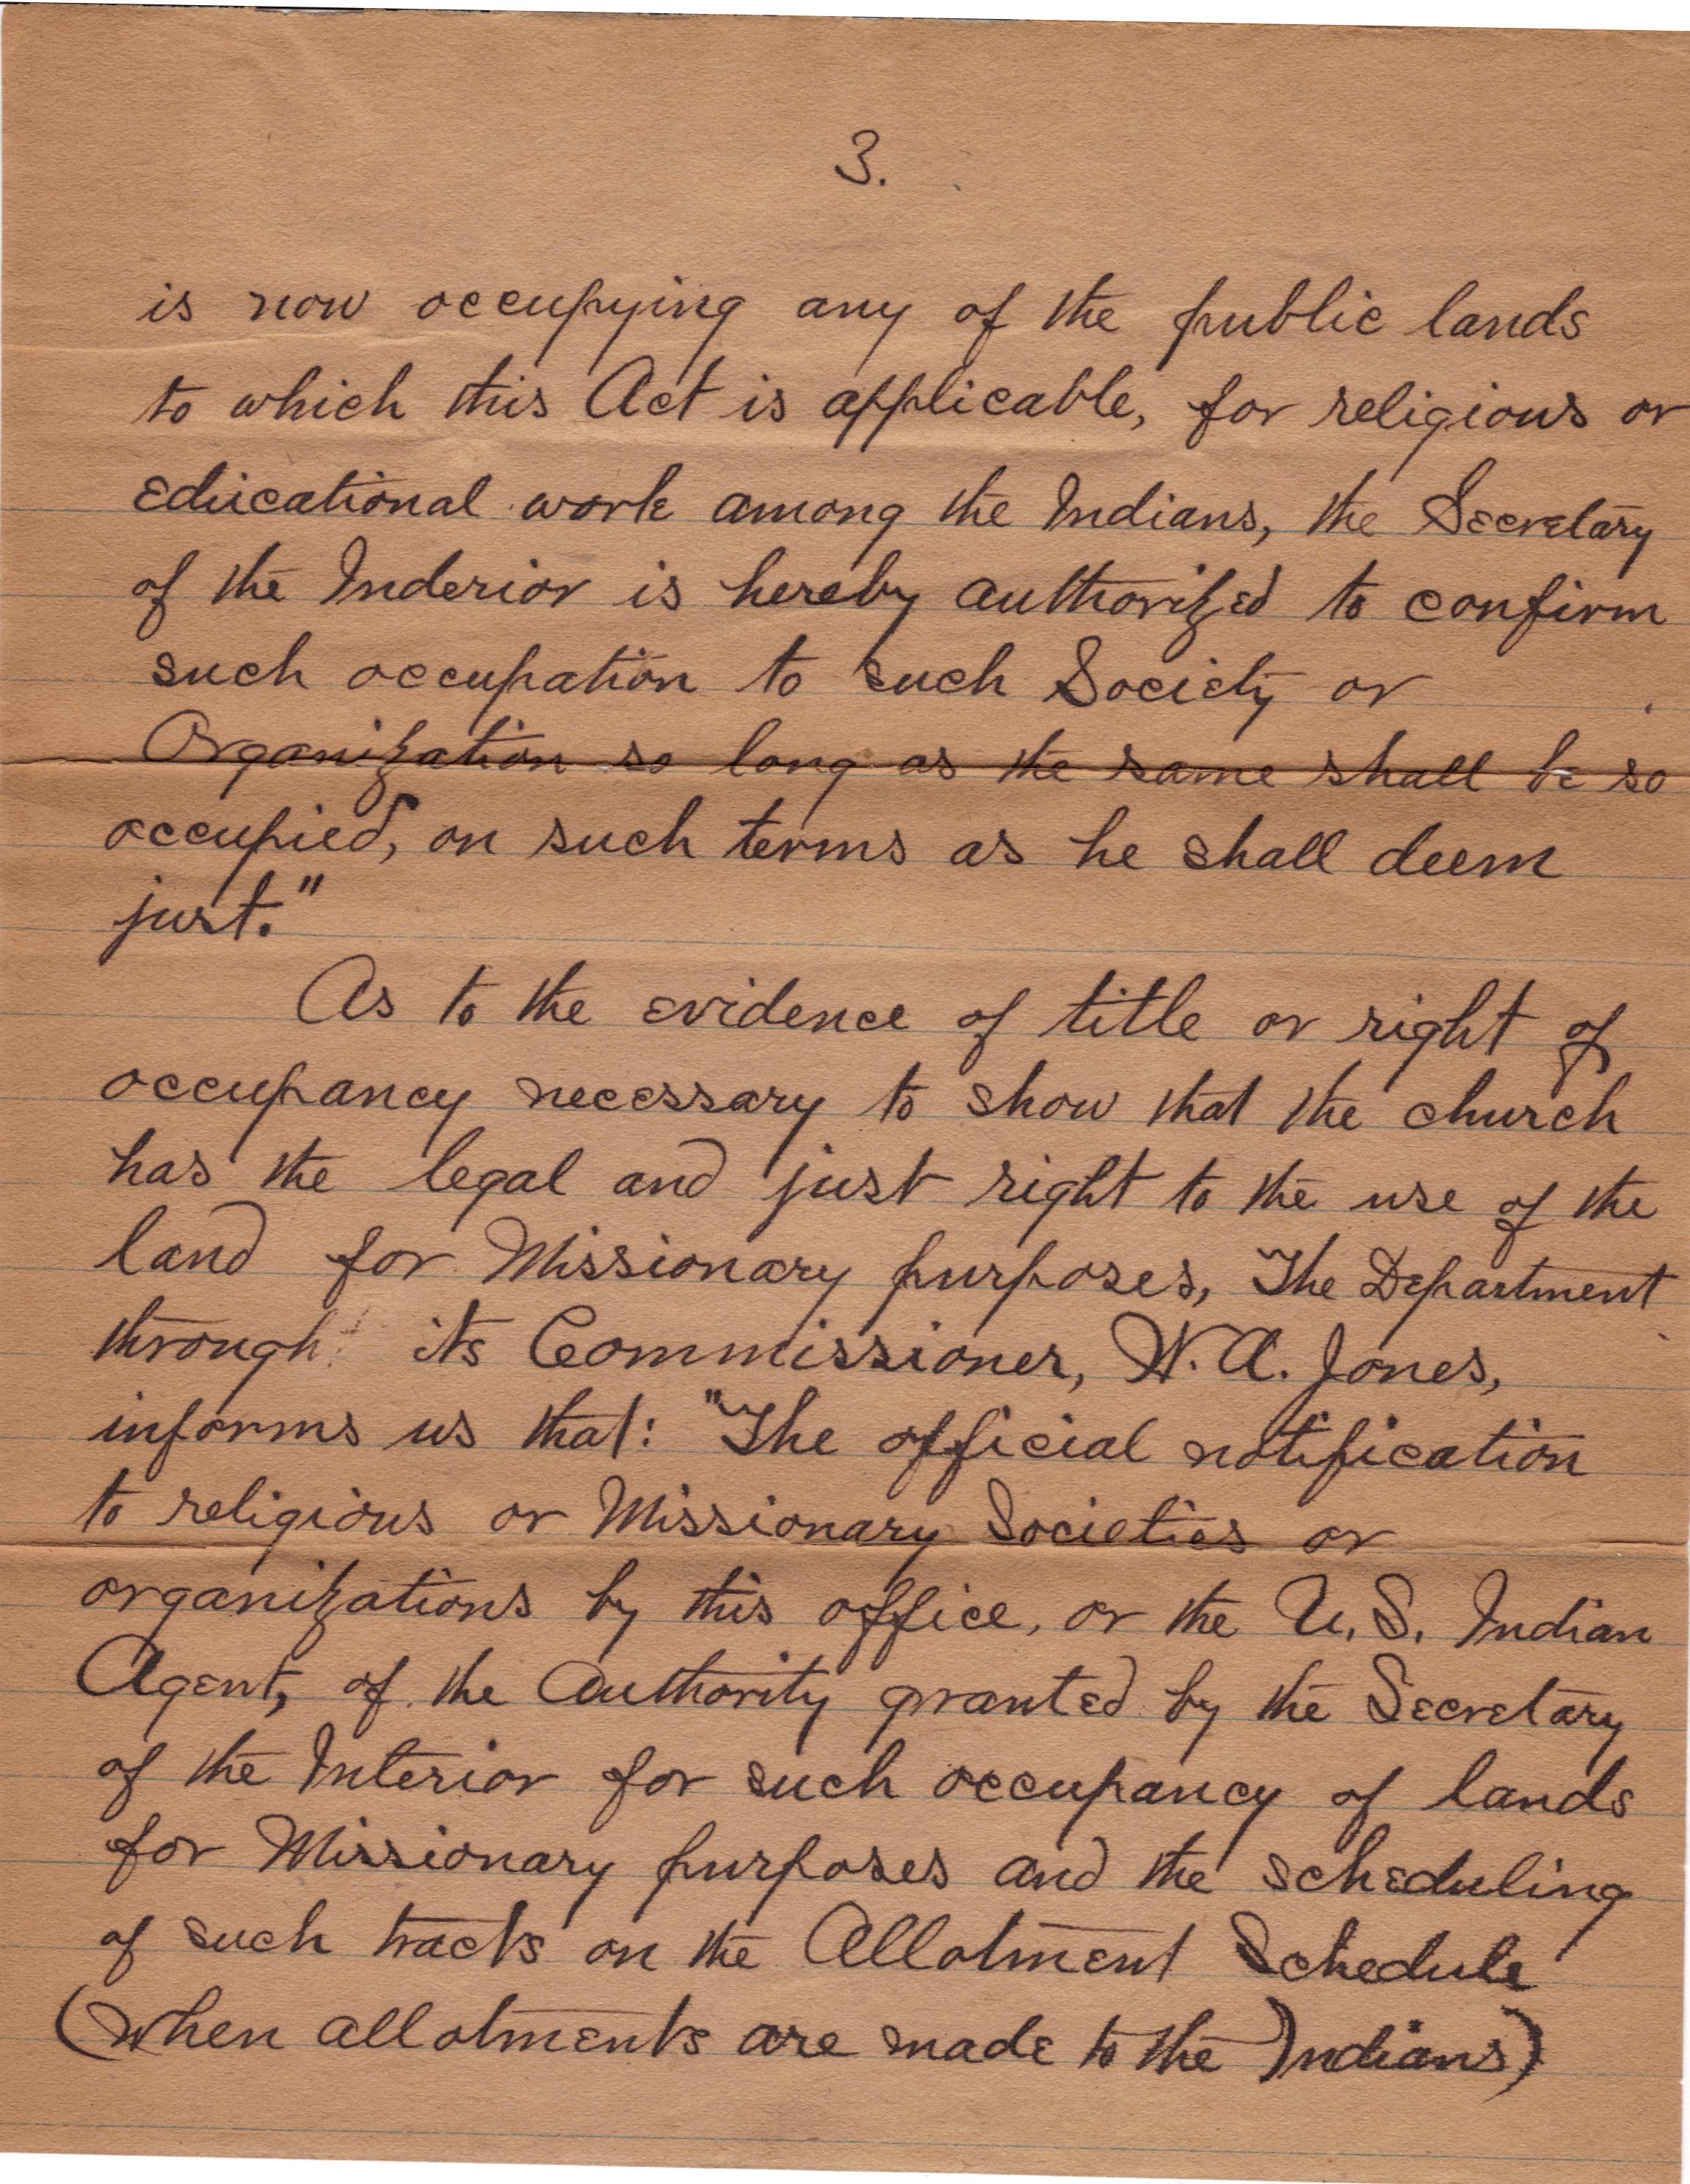 3.
is now occupying any of the public lands
to which this Act is applicable, for religious or
educational work among the Indians, the Secretary
of the Inderior is hereby authorized to confirm
such occupation to such Society or
Organization so long as the same shall be so
occupied, on such terms as he shall deem
just."
As to the evidence of title or right of
occupancy necessary to show that the church
has the legal and just right to the use of the
land for Missionary purposes, The Department
through its Commissioner, W. A. Jones,
informs us that: "The official notification
to religious or Missionary Societies or
organizations by this office, or the U. S. Indian
Agent, of the Authority granted by the Secretary
of the Interior for such occupancy of lands
for Missionary purposes and the scheduling
of such tracts on the Allotment Schedule
(when allotments are made to the Indians)